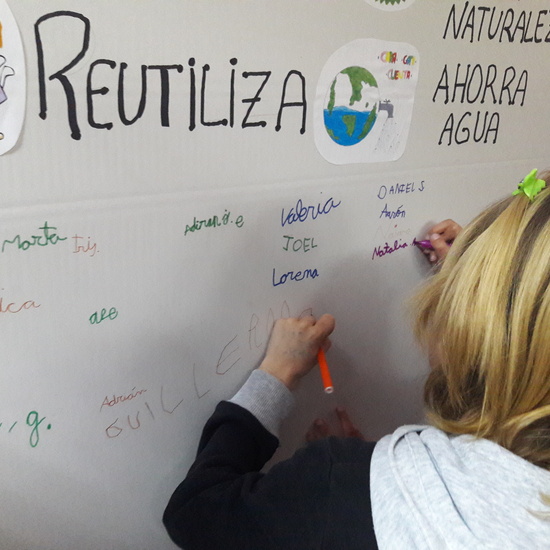 NATURALEZ
REUTILIZA
CADA GOTA
CUENTA
AHORRA
AGUA
DANIEL S
Valeria
Adrián G.e
Aarón
Marta
Iris.
JOEL
Natalia
Lorena
ica
ale
GUILLERMO
Adrián
g.